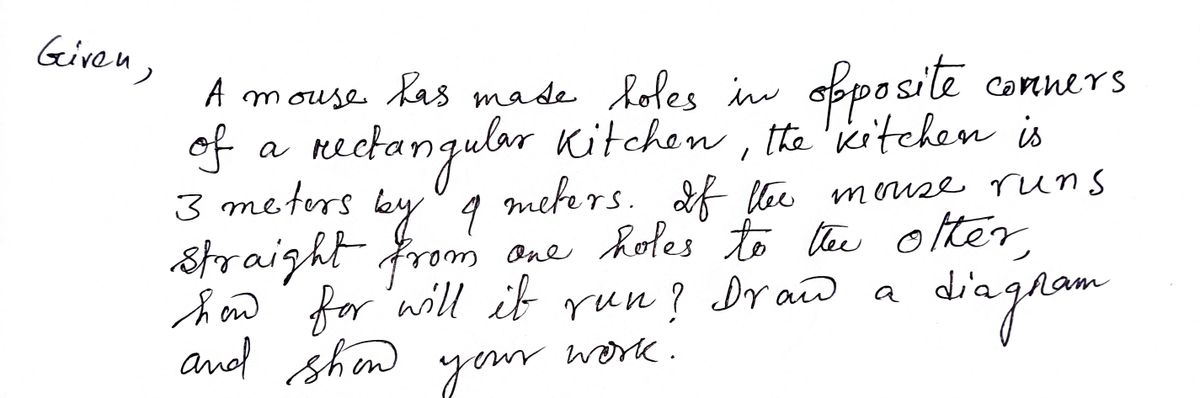 Given,
A mouse has made holes in opposite corners
of a rectangular kitchen, the kitchen is
3 meters by 4 meters. If the mouse runs
straight from one holes to the other,
how far will it run? Draw a diagram
and show your work.